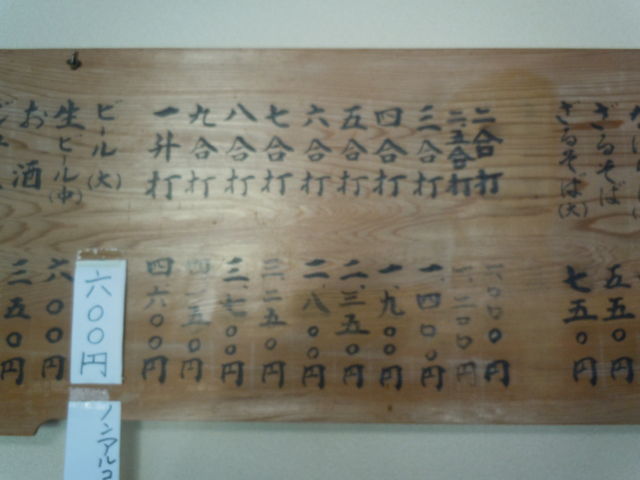 ざるそば 五五〇円
ざるそば(大) 七五〇円
二合打 一〇〇〇円
二五合打 一、二〇〇円
三合打 一、四〇〇円
四合打 一、九〇〇円
五合打 二、三五〇円
六合打 二、八〇〇円
七合打 三、二五〇円
八合打 三、七〇〇円
九合打 四、一五〇円
一升打 四、六〇〇円
ビール(大) 六〇〇円
ノンアルコ
生ビール(中) 六〇〇円
お酒 三五〇円